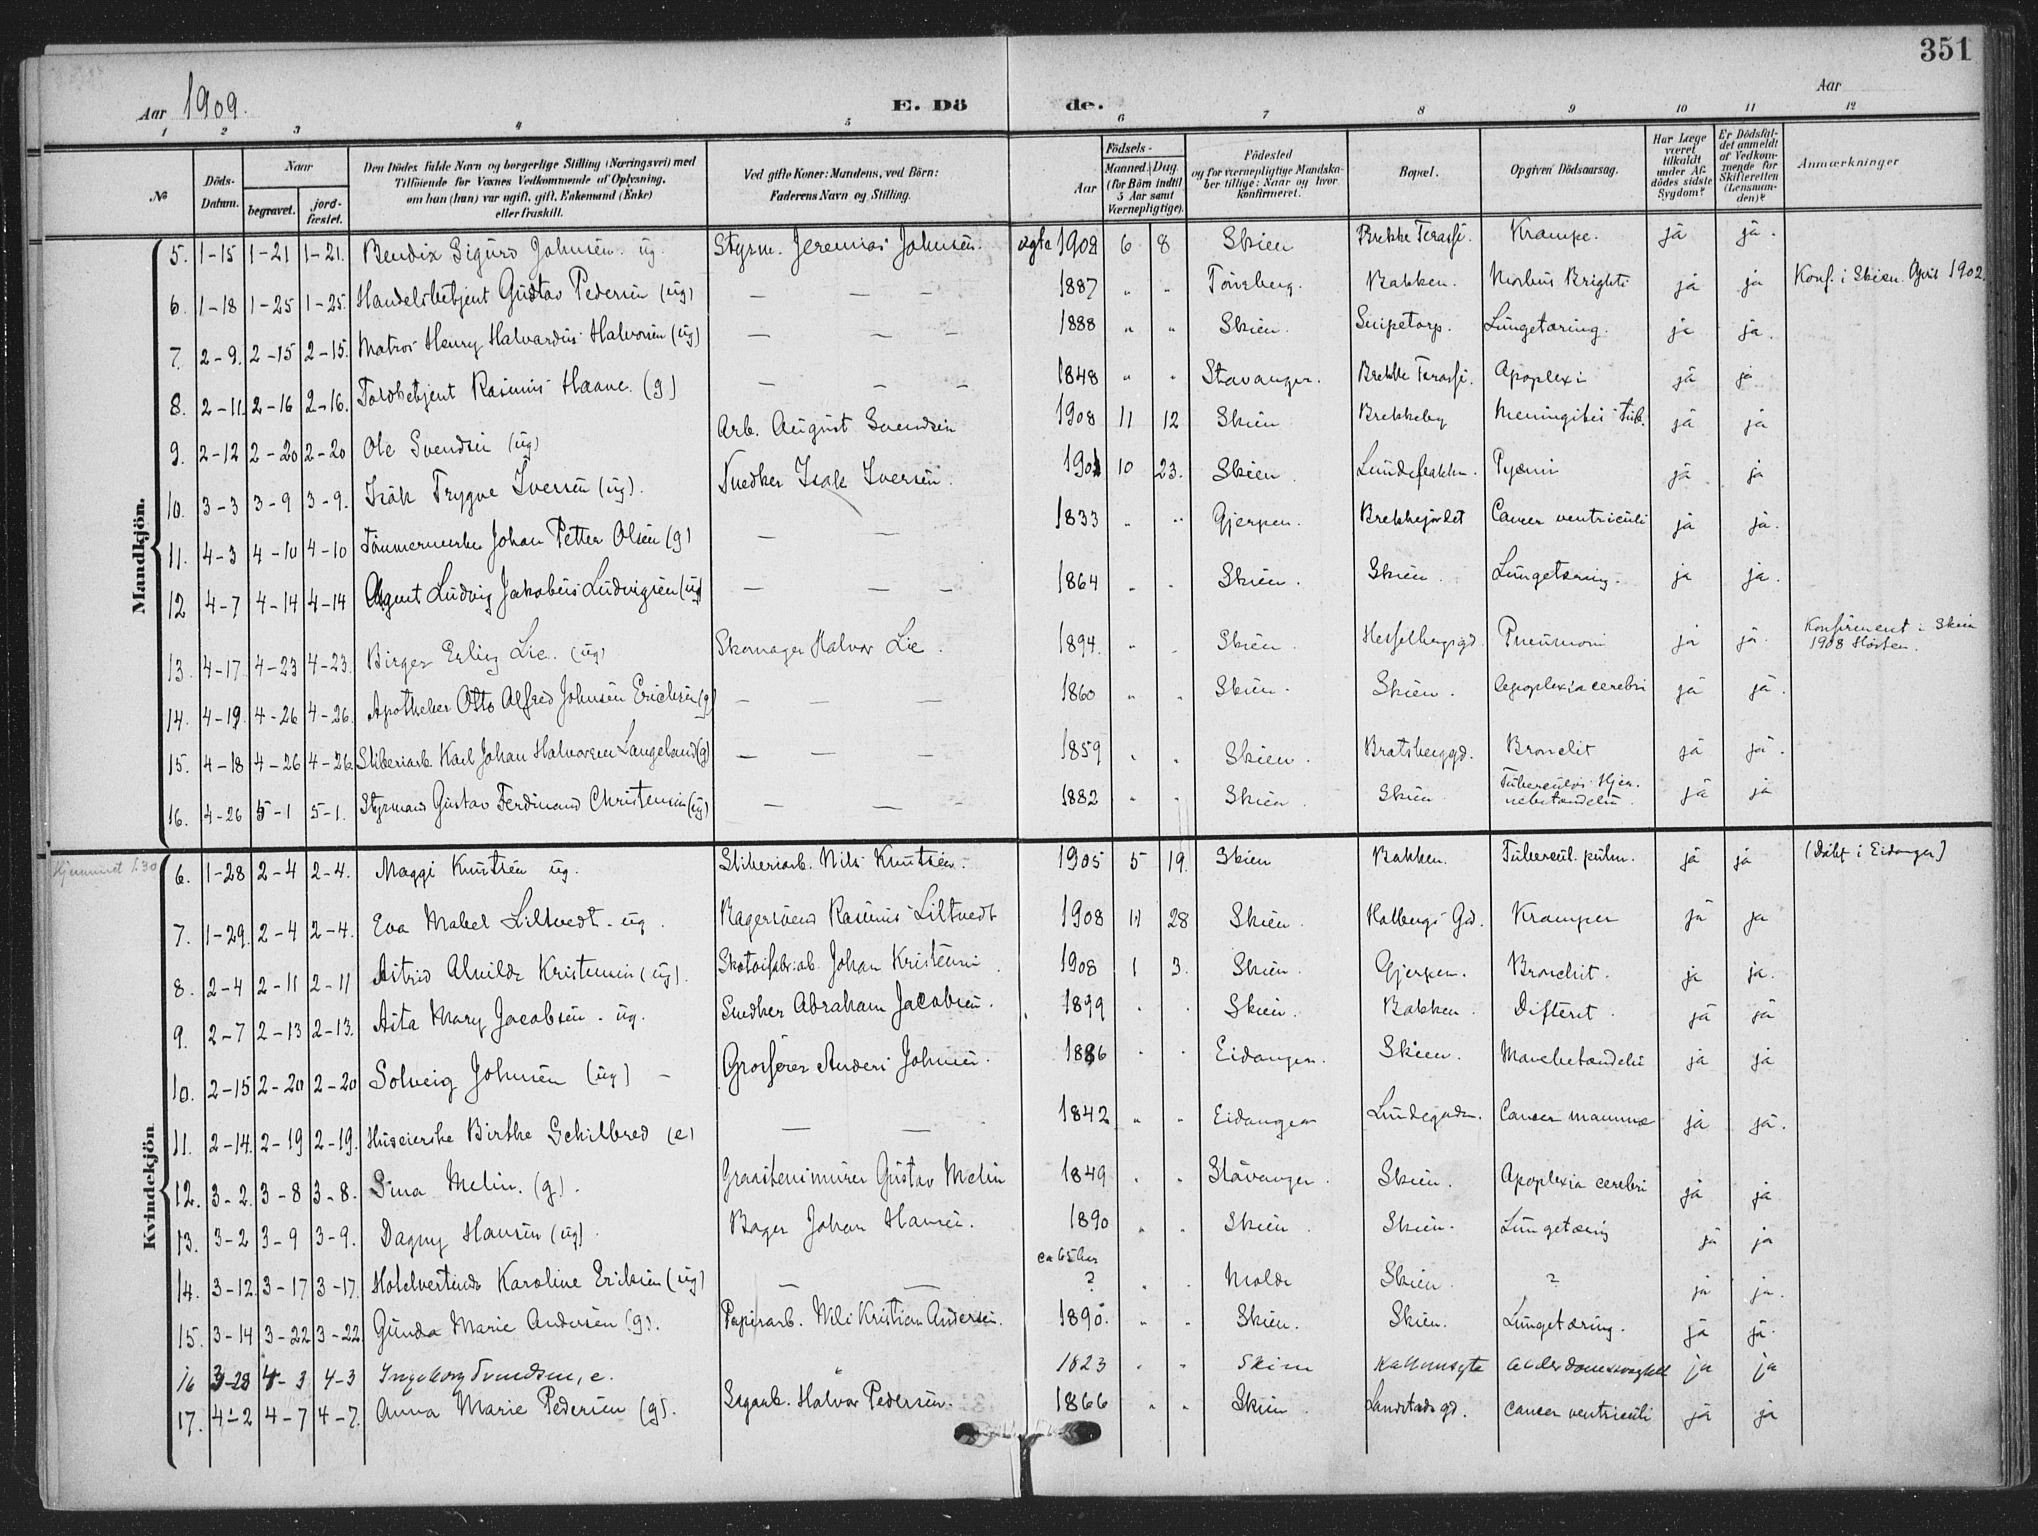 351
Aar 1909. E. Dö de. Aar
1 2 3 4 5 6 7 8 9 10 11 12
No
Döds-Datum.
Naar begravet. jord-fæstet.
Den Dödes fulde Navn og borgerlige Stilling (Næringsvei) med Tilföiende for Voxnes Vedkommende af Oplysning, om han (hun) var ugift, gift, Enkemand (Enke) eller fraskilt.
Ved gifte Koner: Mandens, ved Börn: Faderens Navn og Stilling.
Födsels-
Aar Maaned. Dag. (for Börn indtil 5 Aar samt Værnepligtige).
Födested og for værnepligtige Mandskaber tillige: Naar og hvor konfirmeret.
Bopæl.
Opgiven Dödsaarsag.
Har Læge været tilkaldt under Afdödes sidste Sygdom?
Er Dödsfaldet anmeldt af Vedkommende for Skifteretten (Lensmanden)?
Anmærkninger
Mandkjön.
5. 1-15 1-21 1-21. Bendix Sigurd Johnsen. ug. Styrm. Jeremias Johnsen. ægte 1908 6 8 Skien Brekke Terasse. Krampe. ja ja.
6. 1-18 1-25 1-25. Handelsbetjent Gustav Pedersen (ug) — — — 1887 " " Tönsberg. Bakken. Morbus Brighti ja ja Konf. i Skien April 1902.
7. 2-9. 2-15 2-15. Matros Henry Halvardus Halvorsen (ug) — — — 1888 " " Skien. Snipetorp. Lungetæring. ja ja.
8. 2-11. 2-16 2-16. Toldbetjent Rasmus Haave. (g) — — — 1848 " " Stavanger. Brekke Terasse. Apoplexi ja ja
9. 2-12 2-20 2-20 Ole Svendsen (ug) Arb. August Svendsen 1908 11 12 Skien Brekkeby Meningitis Tub. ja ja
10. 3-3 3-9 3-9. Isak Trygve Iversen (ug). Snedker Isak Iversen. 1901 10 23. Skien. Lundebakken. Pyæmi ja ja
11. 4-3 4-10 4-10 Tömmermerker Johan Petter Olsen (g) — — 1833 " " Gjerpen. Brekkejordet Cancer ventriculi ja ja.
12 4-7 4-14 4-14 Agent Ludvig Jakobus Ludvigsen (ug) — — — 1864 " " Skien. Skien. Lungetæring. ja ja.
13. 4-17. 4-23 4-23. Birger Erling Lie. (ug) Skomager Halvor Lie. 1894. " " Skien. Hesselbergsgd. Pneumoni ja ja. Konfirmeret i Skien 1908 Hösten.
14. 4-19. 4-26 4-26. Apotheker Otto Alfred Johnsen Erichsen (g) — — — 1860 " " Skien. Skien. Apoplexia cerebri ja ja.
15. 4-18 4-26 4-26. Sliberiarb. Karl Johan Halvorsen Langeland (g) — — — 1859 " " Skien. Bratsberggd. Bronchit ja ja.
16. 4-26 5-1 5-1. Styrmand Gustav Ferdinand Christensen (ug) — — — 1882 " " Skien. Skien. Tuberculös Hjernebetændelse. ja ja
Kvindekjön
6. 1-28 2-4 2-4. Maggi Knutsen ug. Sliberiarb. Nils Knutsen. 1905 5 19. Skien Bakken. Tubercul. pulm. ja ja (Döbt i Eidanger)
7. 1-29. 2-4 2-4. Eva Mabel Liltvedt - ug. Bagersvend Rasmus Liltvedt 1908 11 28 Skien. Holbergs Gd. Kramper ja ja
8. 2-4 2-11 2-11 Astrid Alvilde Kristensen (ug). Skotöifabr: ab. Johan Kristensen. 1908 1 3. Skien. Gjerpen. Bronchit. ja ja.
9. 2-7 2-13 2-13. Asta Mary Jacobsen - ug. Snedker Abraham Jacobsen. 1899 " " Skien. Bakken. Difterit. ja ja
10. 2-15 2-20 2-20 Solveig Johnsen (ug) — Grosserer Anders Johnsen. 1886 " " Eidanger. Skien. Mavebetændelse ja ja
11. 2-14. 2-19 2-19. Huseierske Birthe Schilbred (e) — — 1842 " " Eidanger Lundegaden. Cancer mammæ ja ja.
12. 3-2. 3-8 3-8. Sina Melin. (g). Graastensmurer Gustav Melin 1849 " " Stavanger. Skien. Apoplexia cerebri ja ja
13. 3-2 3-9 3-9. Dagny Hansen (ug). Bager Johan Hansen. 1890 " " Skien. Skien. Lungetæring ja ja
14. 3-12. 3-17 3-17. Hotelvertinde Karoline Eriksen (ug) — — ca 65 Aar ? " " Molde Skien. ? ja ja.
15. 3-14 3-22 3-22 Gunda Marie Andersen (g). Papirarb. Nils Kristian Andersen. 1890. " " Skien. Skien. Lungetæring. ja ja.
16 3-28 4-3 4-3 Ingeborg Svendsen, e. " 1823 " " Skien Alderdomssvaghed ja ja
17. 4-2 4-7 4-7. Anna Marie Pedersen (g). Sagarb. Halvor Pedersen. 1866 " " Skien. Landstads gd. cancer ventriculi ja ja